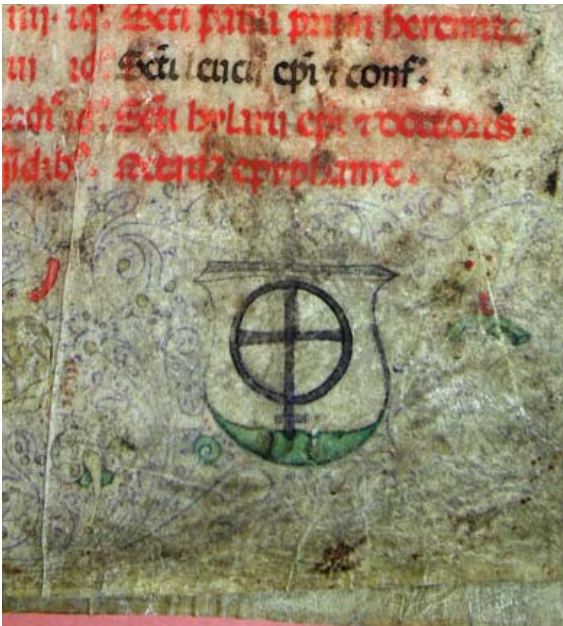 iiij. id'. Sc̄ti pauli primi heremite.
iij id'. Sc̄ti leucij ep̄i ⁊ conf.
id'. Sc̄ti hylarij ep̄i ⁊ doctoris.
ydib'. Octaua epyphanie.